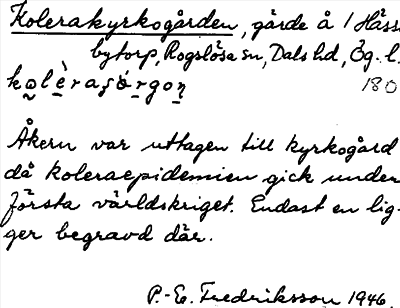 Kolerakyrkogården, gärde å 1 Häss-
bytorp, Rogslösa sn, Dals hd, Ög. l.
kolèraşórgon 180
Åkern var uttagen till kyrkogård
då koleraepidemien gick under
första världskriget. Endast en lig-
ger begravd där.
P.-E. Fredriksson 1946.